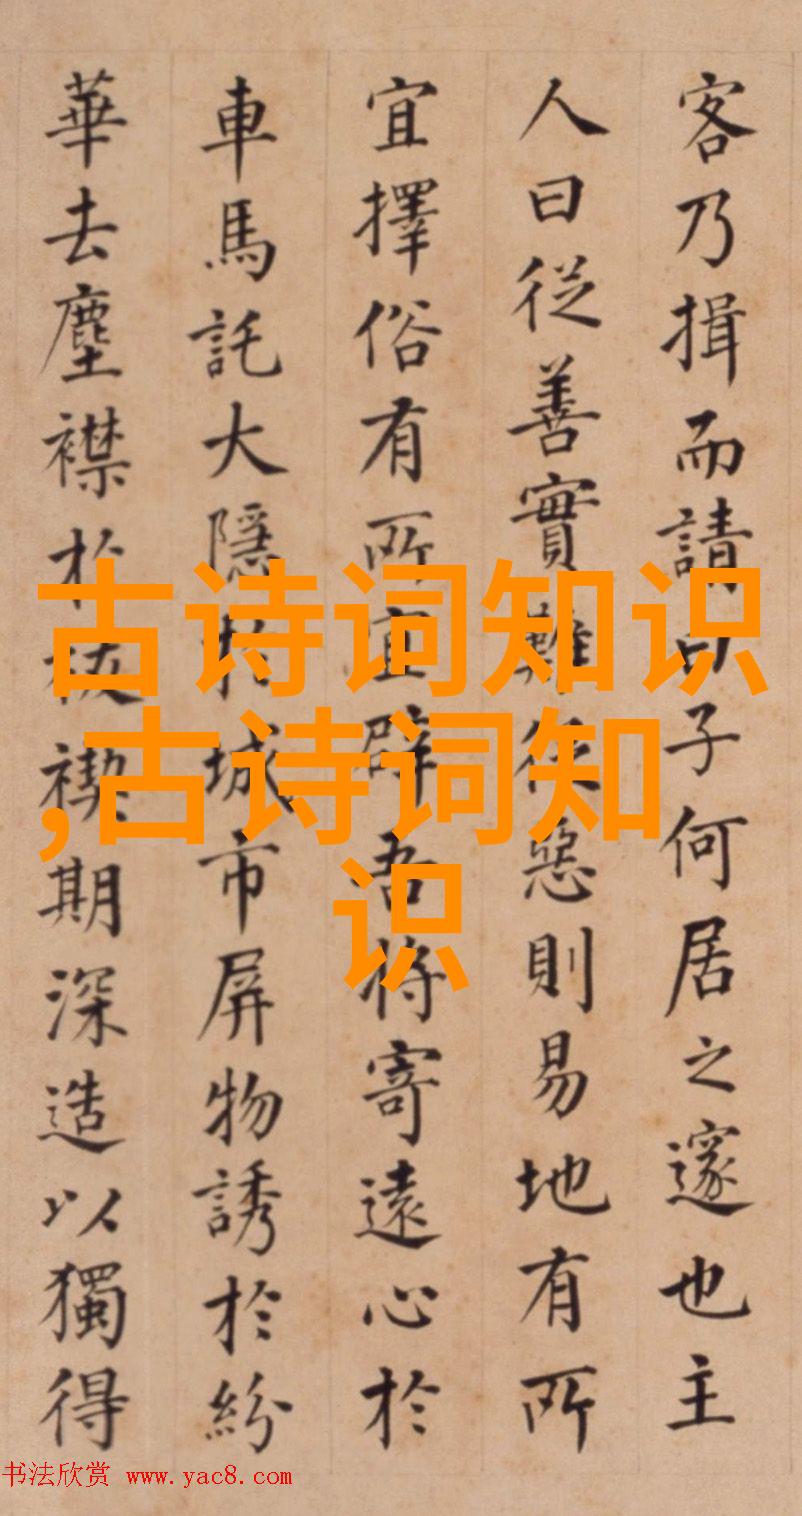 客乃揖而請曰子何居之邃也主
人曰從善實難從惡則易地有所
宜擇俗有所宜辟吾將寄遠心於
車馬託大隱於城市屏物誘於紛
華去塵襟於祓禊期深造以獨得
古诗词知识
,古诗词知
识
书法欣赏 www.yac8.com